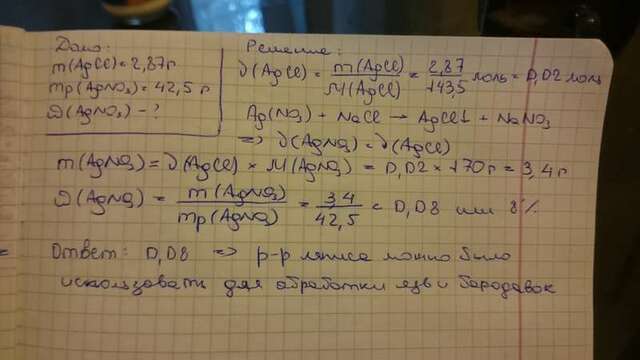 Дано:
m(AgCl) = 2,87г
mр(AgNO3) = 42,5 г
ω(AgNO3) - ?
Решение:
ν(AgCl) = m(AgCl) / M(AgCl) = 2,87 / 143,5 моль = 0,02 моль
Ag(NO3) + NaCl → AgCl↓ + NaNO3
=> ν(AgNO3) = ν(AgCl)
m(AgNO3) = ν(AgCl) × M(AgNO3) = 0,02 × 170 г = 3,4 г
ω(AgNO3) = m(AgNO3) / mр(AgNO3) = 3,4 / 42,5 = 0,08 или 8%
Ответ: 0,08 => р-р ляписа можно было
использовать для обработки язв и бородавок